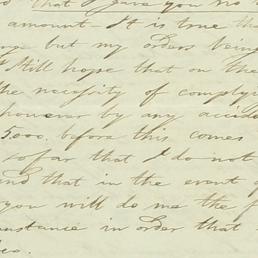 that I gave you no
amount - It is true tha
but my orders being
I still hope that on the
the necessity of complyi
however by any accide
5.000. before this comes
so far that I do not
and that in the event of
you will do me the f
instance in order that